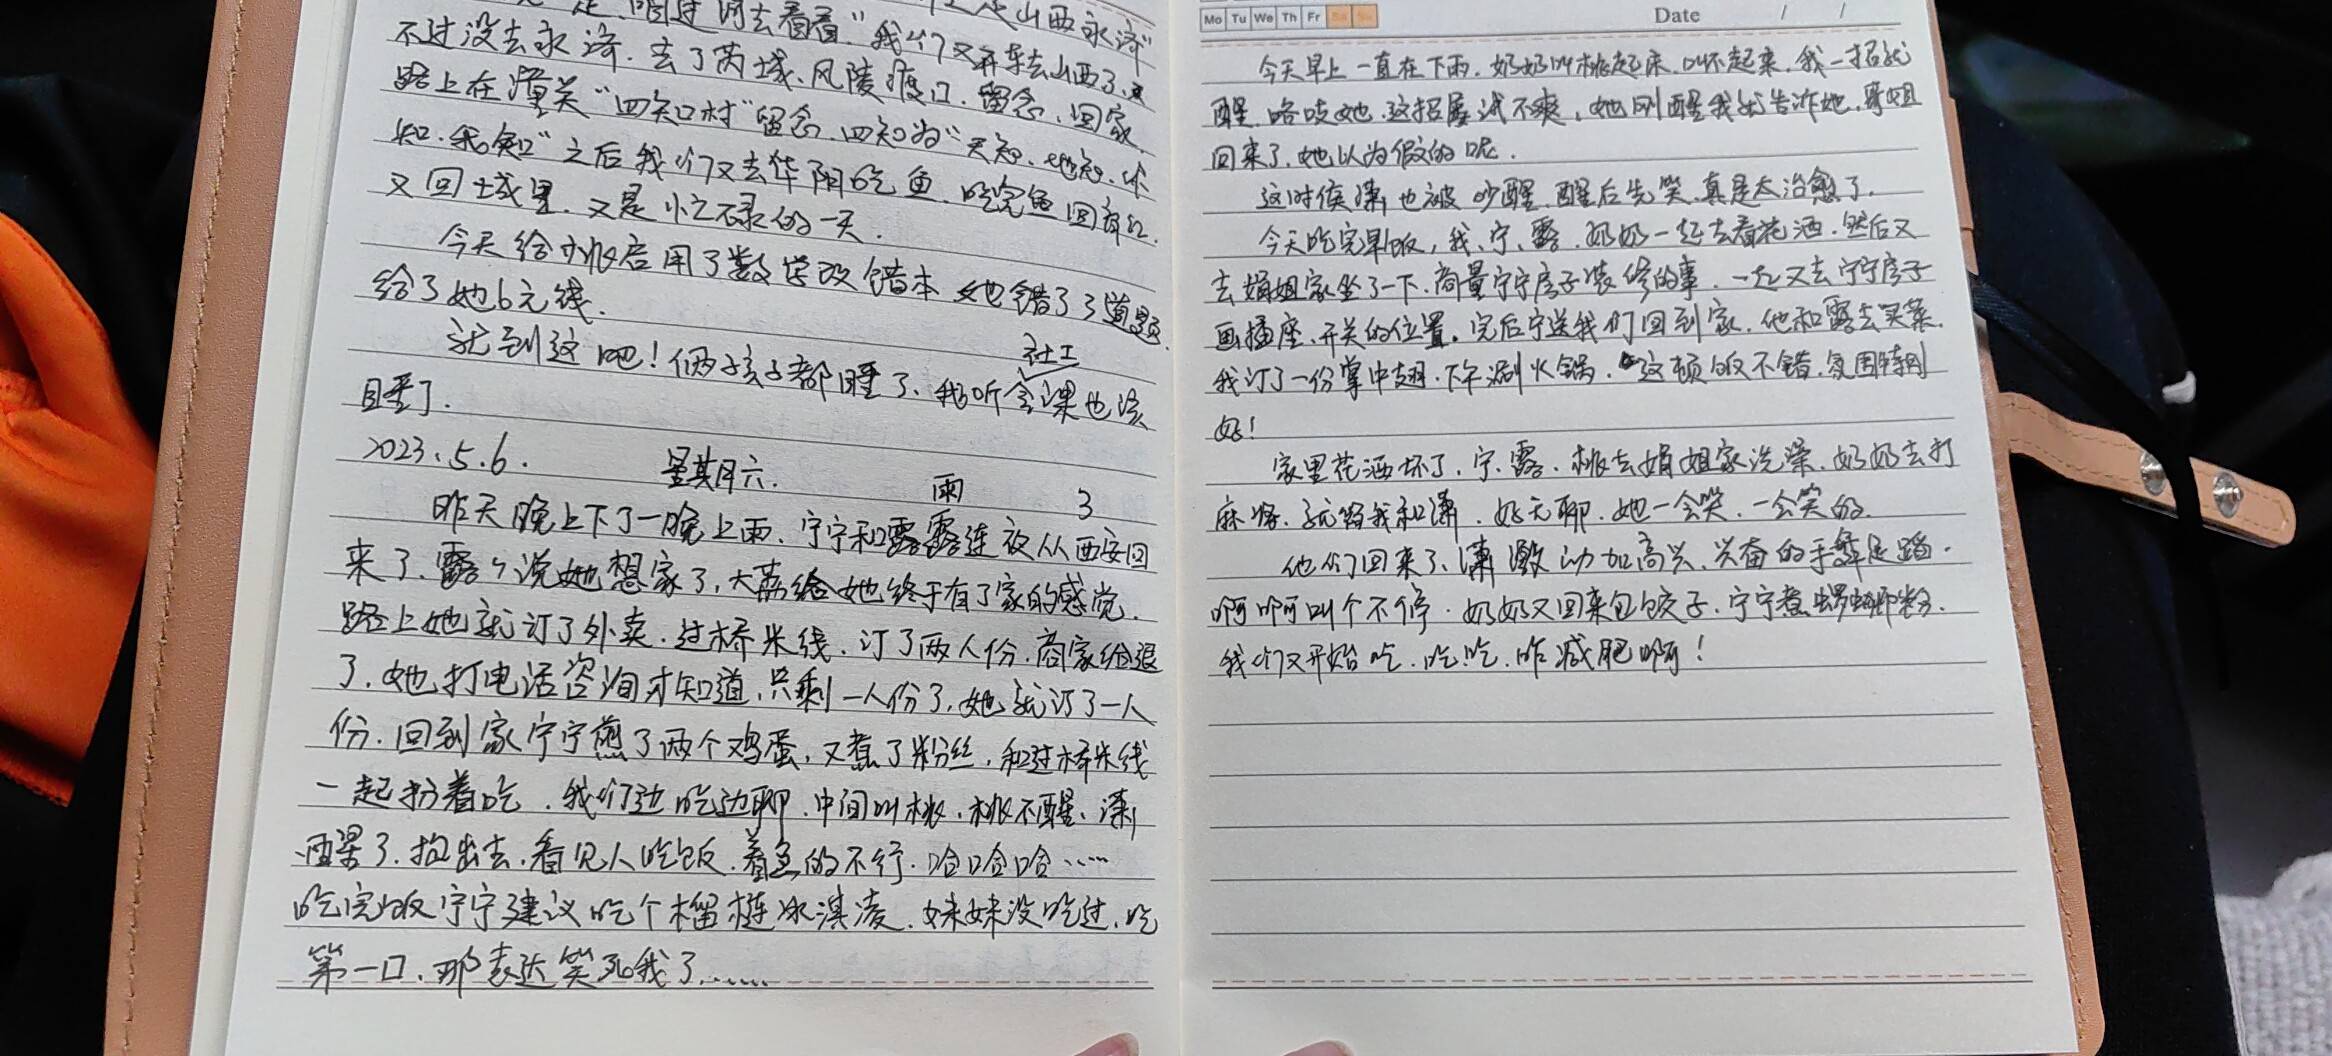 是山西永济"
过河去看看"我们又开车去山西了,
不过没去永济.去了芮城、风陵渡口.留念.回家.
路上在潼关"四知村"留念.四知为"天知.地知.你
知.我知"之后我们又去华阴吃鱼.吃完鱼回
又回城里.又是忙碌的一天.
今天给桃启用了数学改错本.她错了3道题.
给了她6元钱.
就到这吧!俩孩子都睡了.我听会课也该
社工
睡了.
2023.5.6. 星期六. 雨 3
昨天晚上下了一晚上雨.宁宁和露露连夜从西安回
来了.露露说她想家了,大荔给她终于有了家的感觉.
路上她就订了外卖.过桥米线.订了两人份.商家给退
了.她打电话咨询才知道,只剩一人份了,她就订了一人
份.回到家宁宁煎了两个鸡蛋,又煮了粉丝,和过桥米线
一起扮着吃.我们边吃边聊.中间叫桃.桃不醒、潇
醒了.抱出去.看见人吃饭.着急的不行.哈哈哈……
吃完饭宁宁建议吃个榴梿冰淇凌.妹妹没吃过,吃
第一口.那表达笑死我了……
Mo Tu We Th Fr Sa Su
Date / /
今天早上一直在下雨.奶奶叫桃起床.叫不起来.我一招就
醒.咯吱她.这招屡试不爽,她刚醒我就告诉她.哥姐
回来了.她以为假的呢.
这时侯潇也被吵醒.醒后先笑.真是太治愈了.
今天吃完早饭,我、宁、露.奶奶一起去看花洒.然后又
去娟姐家坐了一下.商量宁宁房子装修的事.一起又去宁宁房子
画插座.开关的位置.完后宁送我们回到家.他和露去买菜.
我订了一份掌中翅.下午涮火锅.这顿饭不错.氛围特别
好!
家里花洒坏了.宁.露.桃去娟姐家洗澡.奶奶去打
麻将.就留我和潇.好无聊.她一会笑.一会笑的.
他们回来了、潇激动加高兴、兴奋的手舞足蹈.
啊啊叫个不停.奶奶又回来包饺子.宁宁煮螺蛳粉.
我们又开始吃.吃.吃.咋减肥啊!